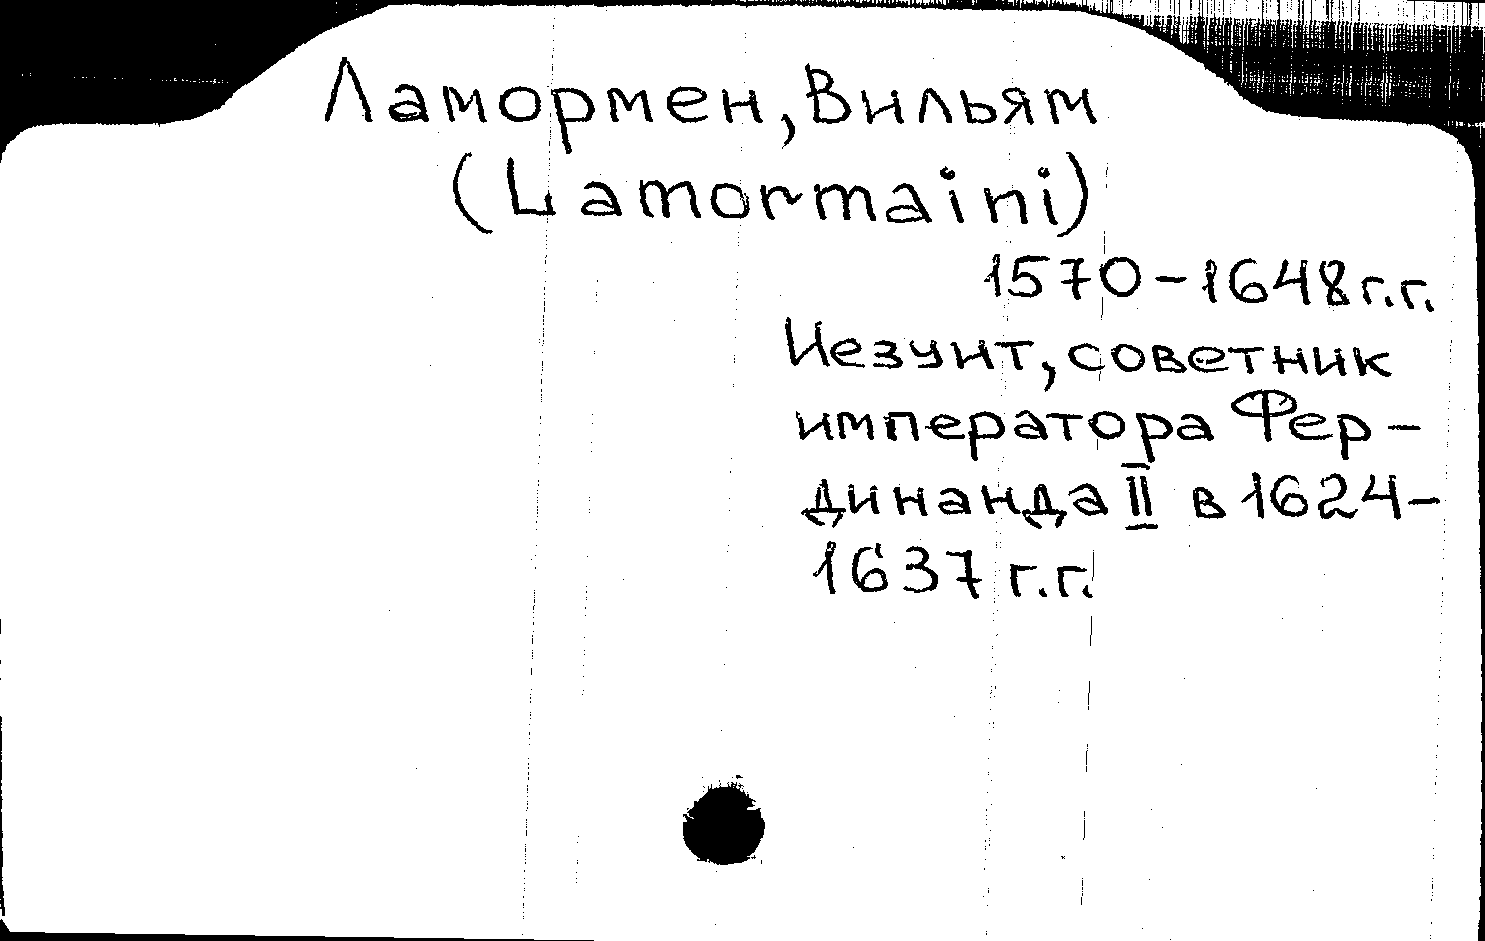 Ламормен, Вильям
(Lamormaini)
1570-1648г.г.
Иезуит, советник
императора Фер-
динанда II в 1624-
1637 г.г.